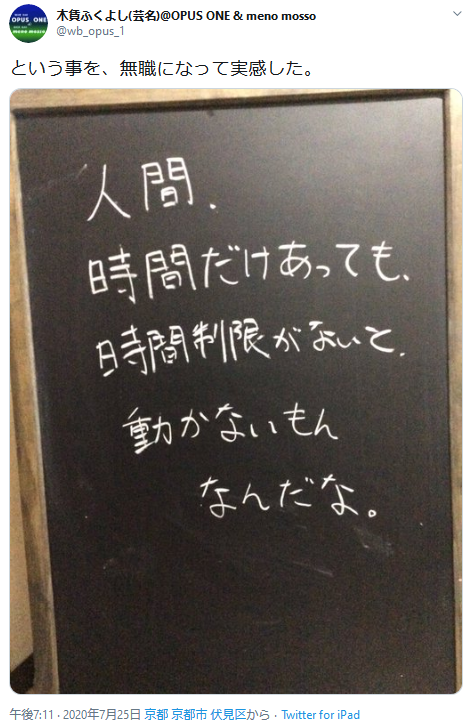 OPUS ONE
meno mosso
木賃ふくよし(芸名)@OPUS ONE & meno mosso
@wb_opus_1
という事を、無職になって実感した。
人間、
時間だけあっても、
時間制限がないと、
動かないもん
なんだな。
午後7:11 · 2020年7月25日 京都 京都市 伏見区から · Twitter for iPad